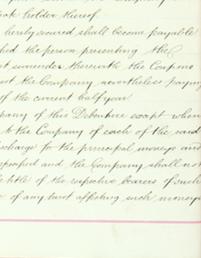 holder thereof
hereby secured shall become payable
the person presenting the
surrender therewith the Coupons
the Company nevertheless paying
of the current half year
of this Debenture except when
to the Company of each of the said
discharge for the principal moneys and
specified and the Company shall not
title of the respective bearers of such
or of any tax affecting such moneys